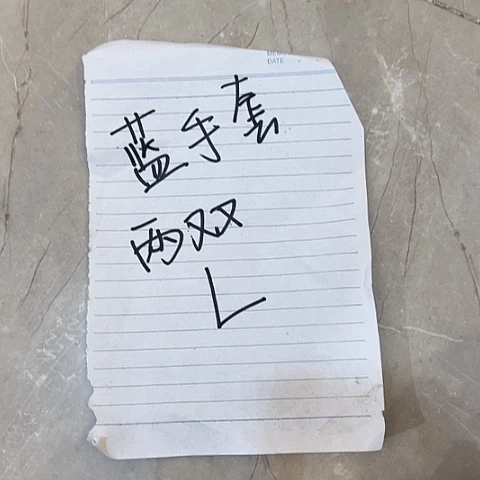 DATE
蓝手套
两双
L